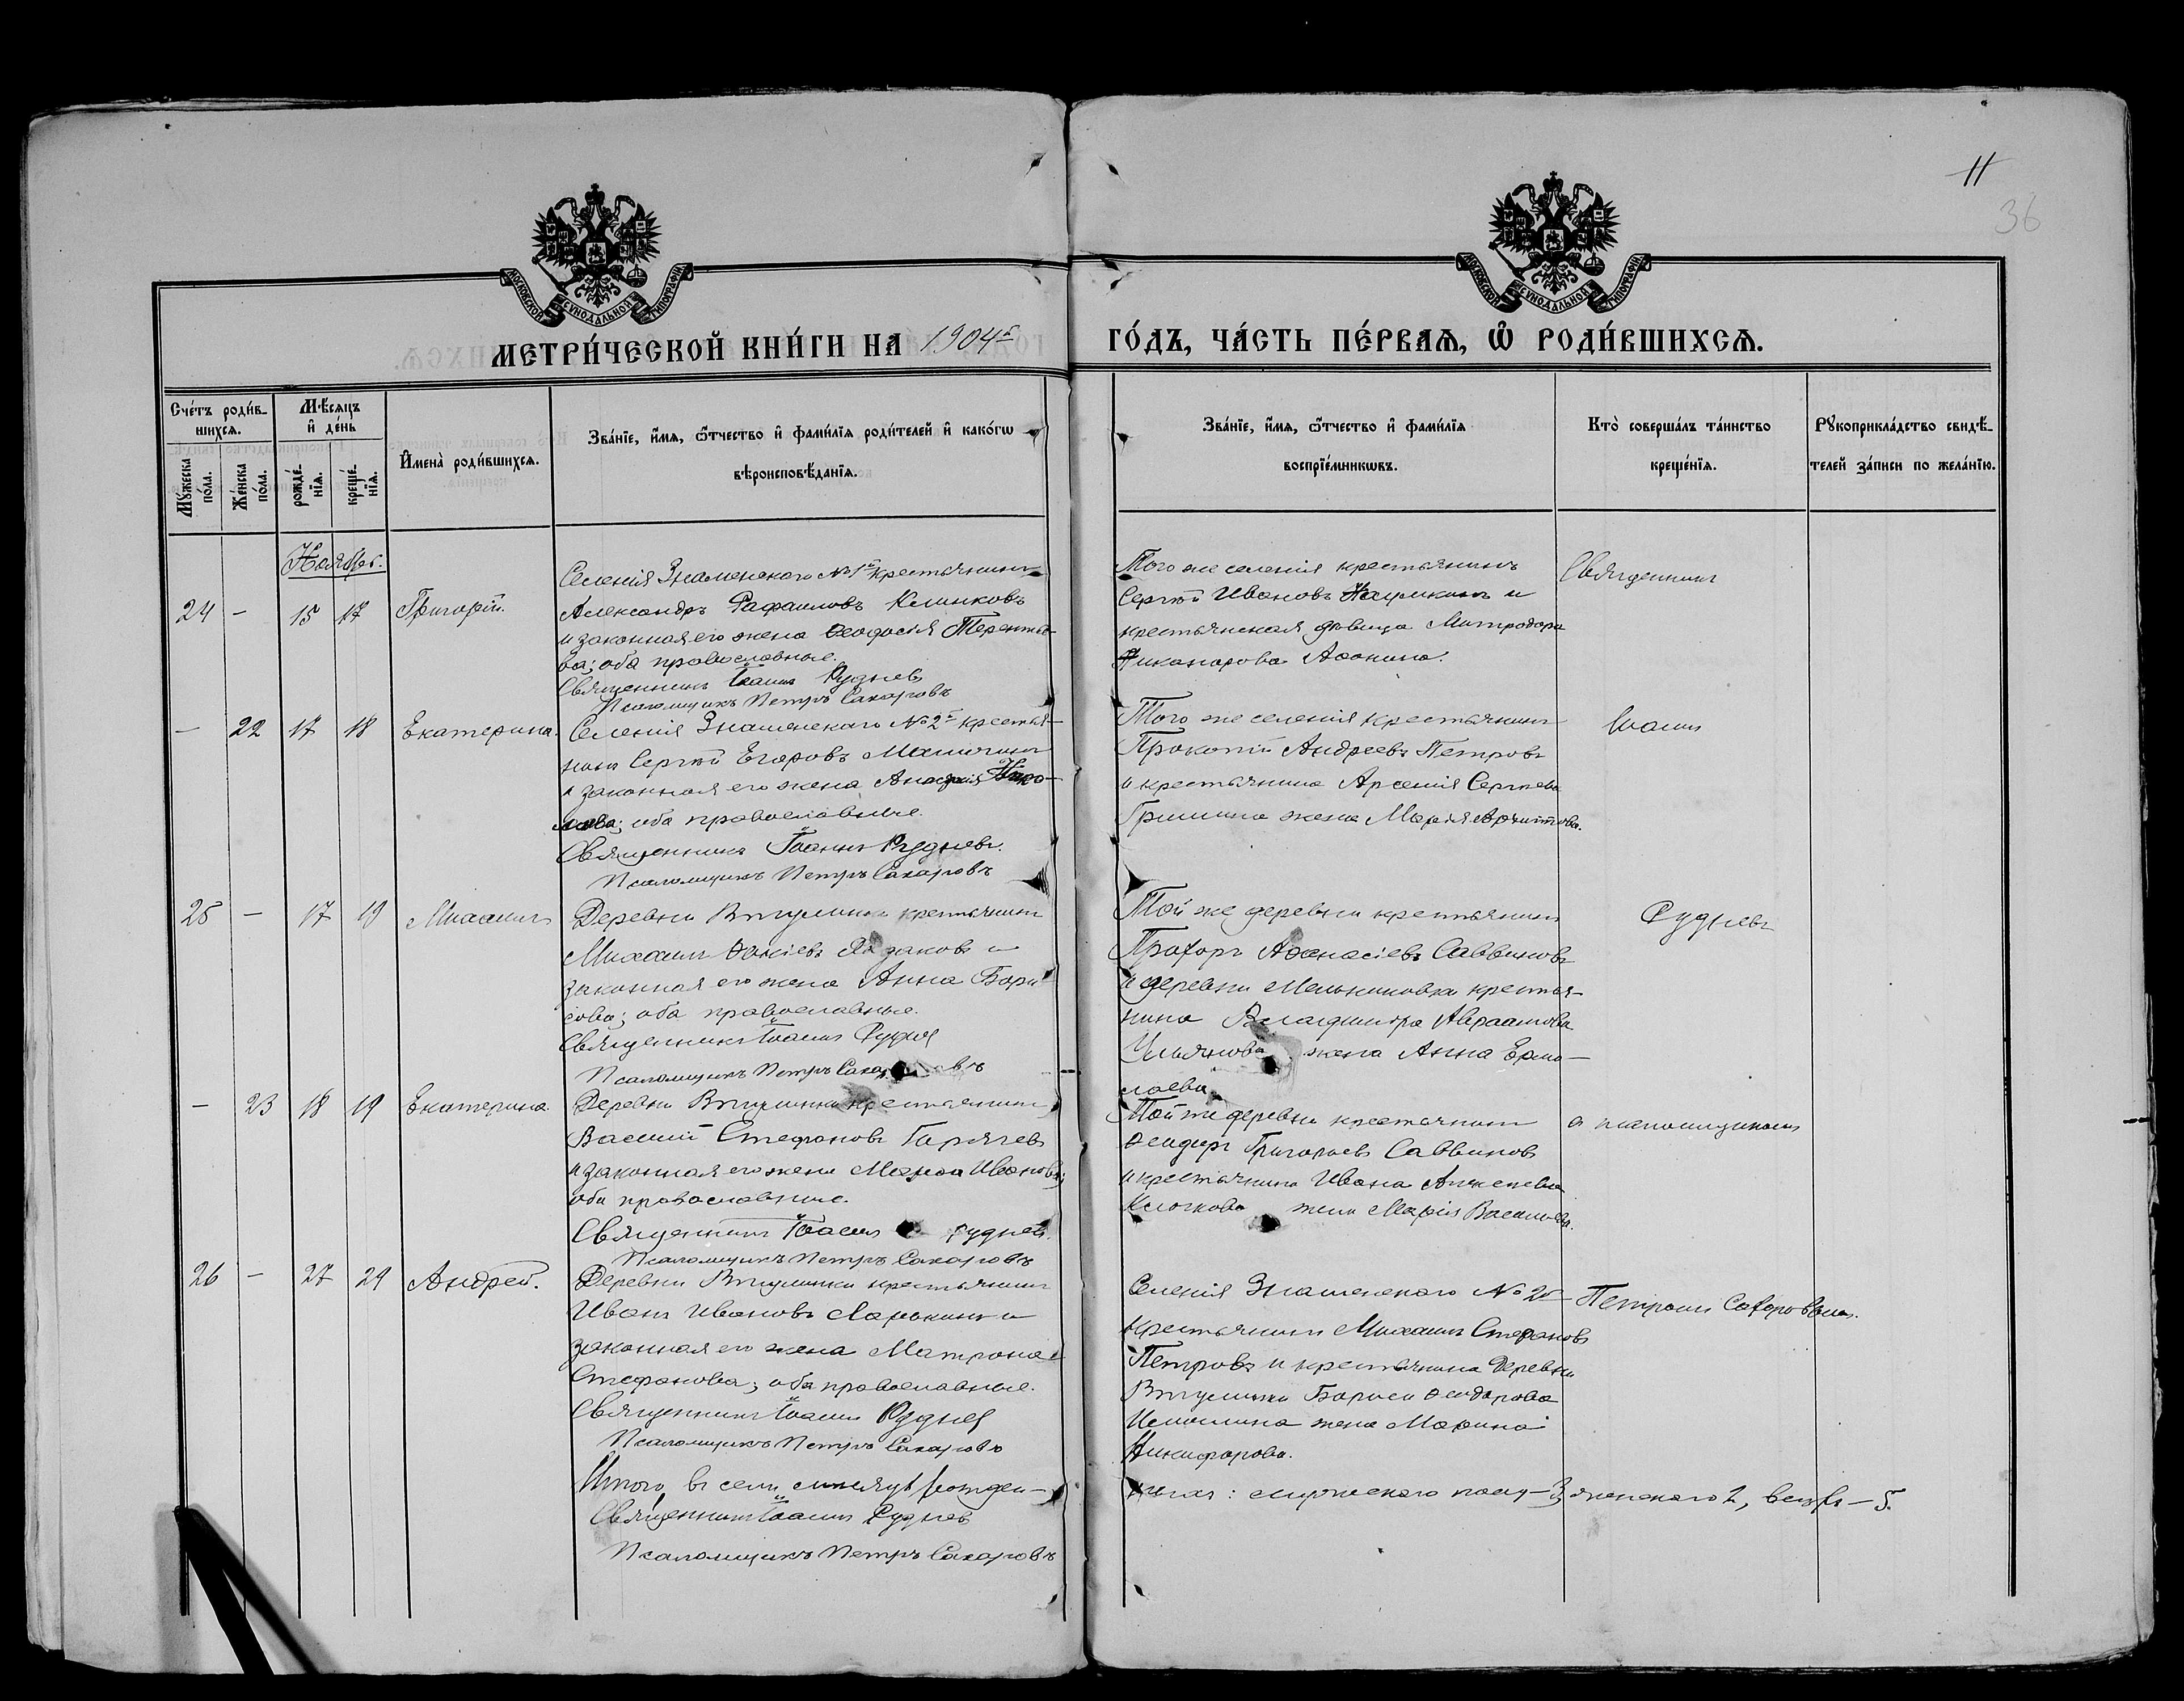 11
36
МОСКОВСКОЙ СѴНОДАЛЬНОЙ ТИПОГРАФІИ
МОСКОВСКОЙ СѴНОДАЛЬНОЙ ТИПОГРАФІИ
МЕТРИ́ЧЕСКОЙ КНИ́ГИ НА 1904 г ГО́ДЪ, ЧА́СТЬ ПЕ́РВАѦ, Ѡ РОДИ́ВШИХСѦ.
Сче́тъ роди́в-
шихсѧ.
Мѣ́сѧцъ
и де́нь
Му́жеска по́ла.
Же́нска по́ла.
рожде́нїѧ.
креще́нїѧ.
Имена̀ роди́вшихсѧ.
Зва́нїе, и́мѧ, ѻ҆́тчество и фами́лїѧ роди́телей и како́гѡ
вѣроисповѣ́данїѧ.
Зва́нїе, и́мѧ, ѻ҆́тчество и фами́лїѧ
воспрїе́мникѡвъ.
Кто̀ соверша́лъ та́инство
креще́нїѧ.
Рꙋкоприкла́дство свидѣ́-
телей за́писи по жела́нїю.
Ноябрь.
24 - 15 17 Григорій.
Селенія Знаменскаго №1й крестьянинъ
Александръ Рафаиловъ Клинковъ
и законная его жена Ѳеодосія Теренть-
ва; оба православные.
Священникъ Іоаннъ Рудневъ
Псаломщикъ Петръ Сахаровъ
Того же селенія крестьянинъ
Сергѣй Ивановъ и
крестьянская дѣвица Митродора
Никанорова Аѳонина.
Священникъ
- 22 17 18 Екатерина.
Селенія Знаменскаго №2й крестья-
нинъ Сергѣй Егоровъ
и законная его жена
оба православные.
Священникъ Іоаннъ Рудневъ.
Псаломщикъ Петръ Сахаровъ
Того же селенія крестьянинъ
Прокопій Андреевъ Петровъ
и крестьянина Арсенія Сергѣева
Гришина жена Марія
Іоаннъ
25 - 17 19 Михаилъ
Деревни крестьянинъ
Михаилъ и
законная его жена Анна Бори-
сова; оба православные.
Священникъ Іоаннъ Рудневъ
Псаломщикъ Петръ Сахаровъ
Той же деревни крестьянинъ
Прохоръ Аѳанасіевъ Саввиновъ
и деревни Мельниковки крестья-
нина Владиміра Авраамова
Ульянова жена Анна Ермо-
лаева
Рудневъ
- 23 18 19 Екатерина
Деревни крестьянинъ
Василій Стефановъ Горячевъ
и законная его жена Иванова;
оба православные.
Священникъ Іоаннъ Рудневъ.
Псаломщикъ Петръ Сахаровъ
Той же деревни крестьянинъ
Ѳеодоръ Григорьевъ Саввиновъ
и крестьянина Ивана Алексѣева
Клочкова жена Марія Васильева.
съ псаломщикомъ
26 - 27 29 Андрей.
Деревни крестьянинъ
Иванъ Ивановъ Ларькинъ и
законная его жена Матрона
Стефанова; оба православные.
Священникъ Іоаннъ Рудневъ
Псаломщикъ Петръ Сахаровъ
Селенія Знаменскаго №2й
крестьянинъ Михаилъ Стефановъ
Петровъ и крестьянина деревни
Бориса Ѳеодорова
жена Марина
Никифорова.
Петромъ Сахаровымъ.
Итого въ семъ мѣсяцѣ рожден-
ныхъ: мужескаго пола - 3, женскаго 2, всѣхъ - 5.
Священникъ Іоаннъ Рудневъ
Псаломщикъ Петръ Сахаровъ